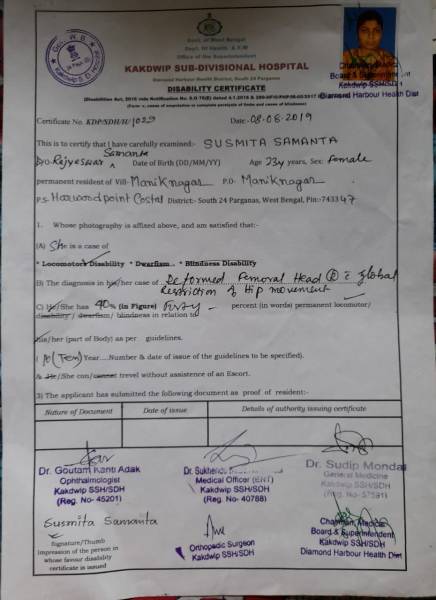 Govt. of West Bengal
Dept. Of Health & F.W
Office of the Superintendent
KAKDWIP SUB-DIVISIONAL HOSPITAL
Diamond Harbour Health District, South 24 Parganas
DISABILITY CERTIFICATE
Chairman, Medical
Board & Superintendent
Kakdwip SSH/SDH
Diamond Harbour Health Dist
Certificate No. KDP/SDH/H/1023 Date: 08-08-2019
This is to certify that I have carefully examined:- SUSMITA SAMANTA
D/O Rajyeswar Samanta Date of Birth (DD/MM/YY) Age 23y years, Sex: Female
permanent resident of Vill- Maniknagar P.O- Maniknagar
P.S. Harwood point Costal District:- South 24 Parganas, West Bengal, Pin:- 743347
1. Whose photography is affixed above, and am satisfied that:-
(A) She is a case of
* Locomotor Disability * Dwarfism * Blindness Disability
B) The diagnosis in his/her case of Deformed Femoral Head (R) c̄ global
Restriction of Hip movement
C) He/She has 40% (in Figure) Forty percent (in words) permanent locomotor/
disability / dwarfism/ blindness in relation to
his/her (part of Body) as per guidelines.
(Ten) Year....Number & date of issue of the guidelines to be specified).
& He/She can/cannot trevel without assistance of an Escort.
3) The applicant has submitted the following document as proof of resident:-
Nature of Document Date of issue Details of authority issuing certificate
Dr. Goutam Kanti Adak
Ophthalmologist
Kakdwip SSH/SDH
(Reg. No- 45201)
Dr. Sukhendu
Medical Officer (ENT)
Kakdwip SSH/SDH
(Reg. No- 40788)
Dr. Sudip Mondal
General Medicine
Kakdwip SSH/SDH
(Reg. No- 57591)
Susmita Samanta
Signature/Thumb
impression of the person in
whose favour disability
certificate is issued
Orthopedic Surgeon
Kakdwip SSH/SDH
Chairman, Medical
Board & Superintendent
Kakdwip SSH/SDH
Diamond Harbour Health Dist